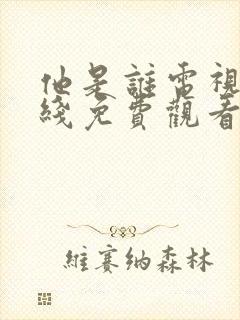 他是誰電視
綫免費觀看
維賽纳森林